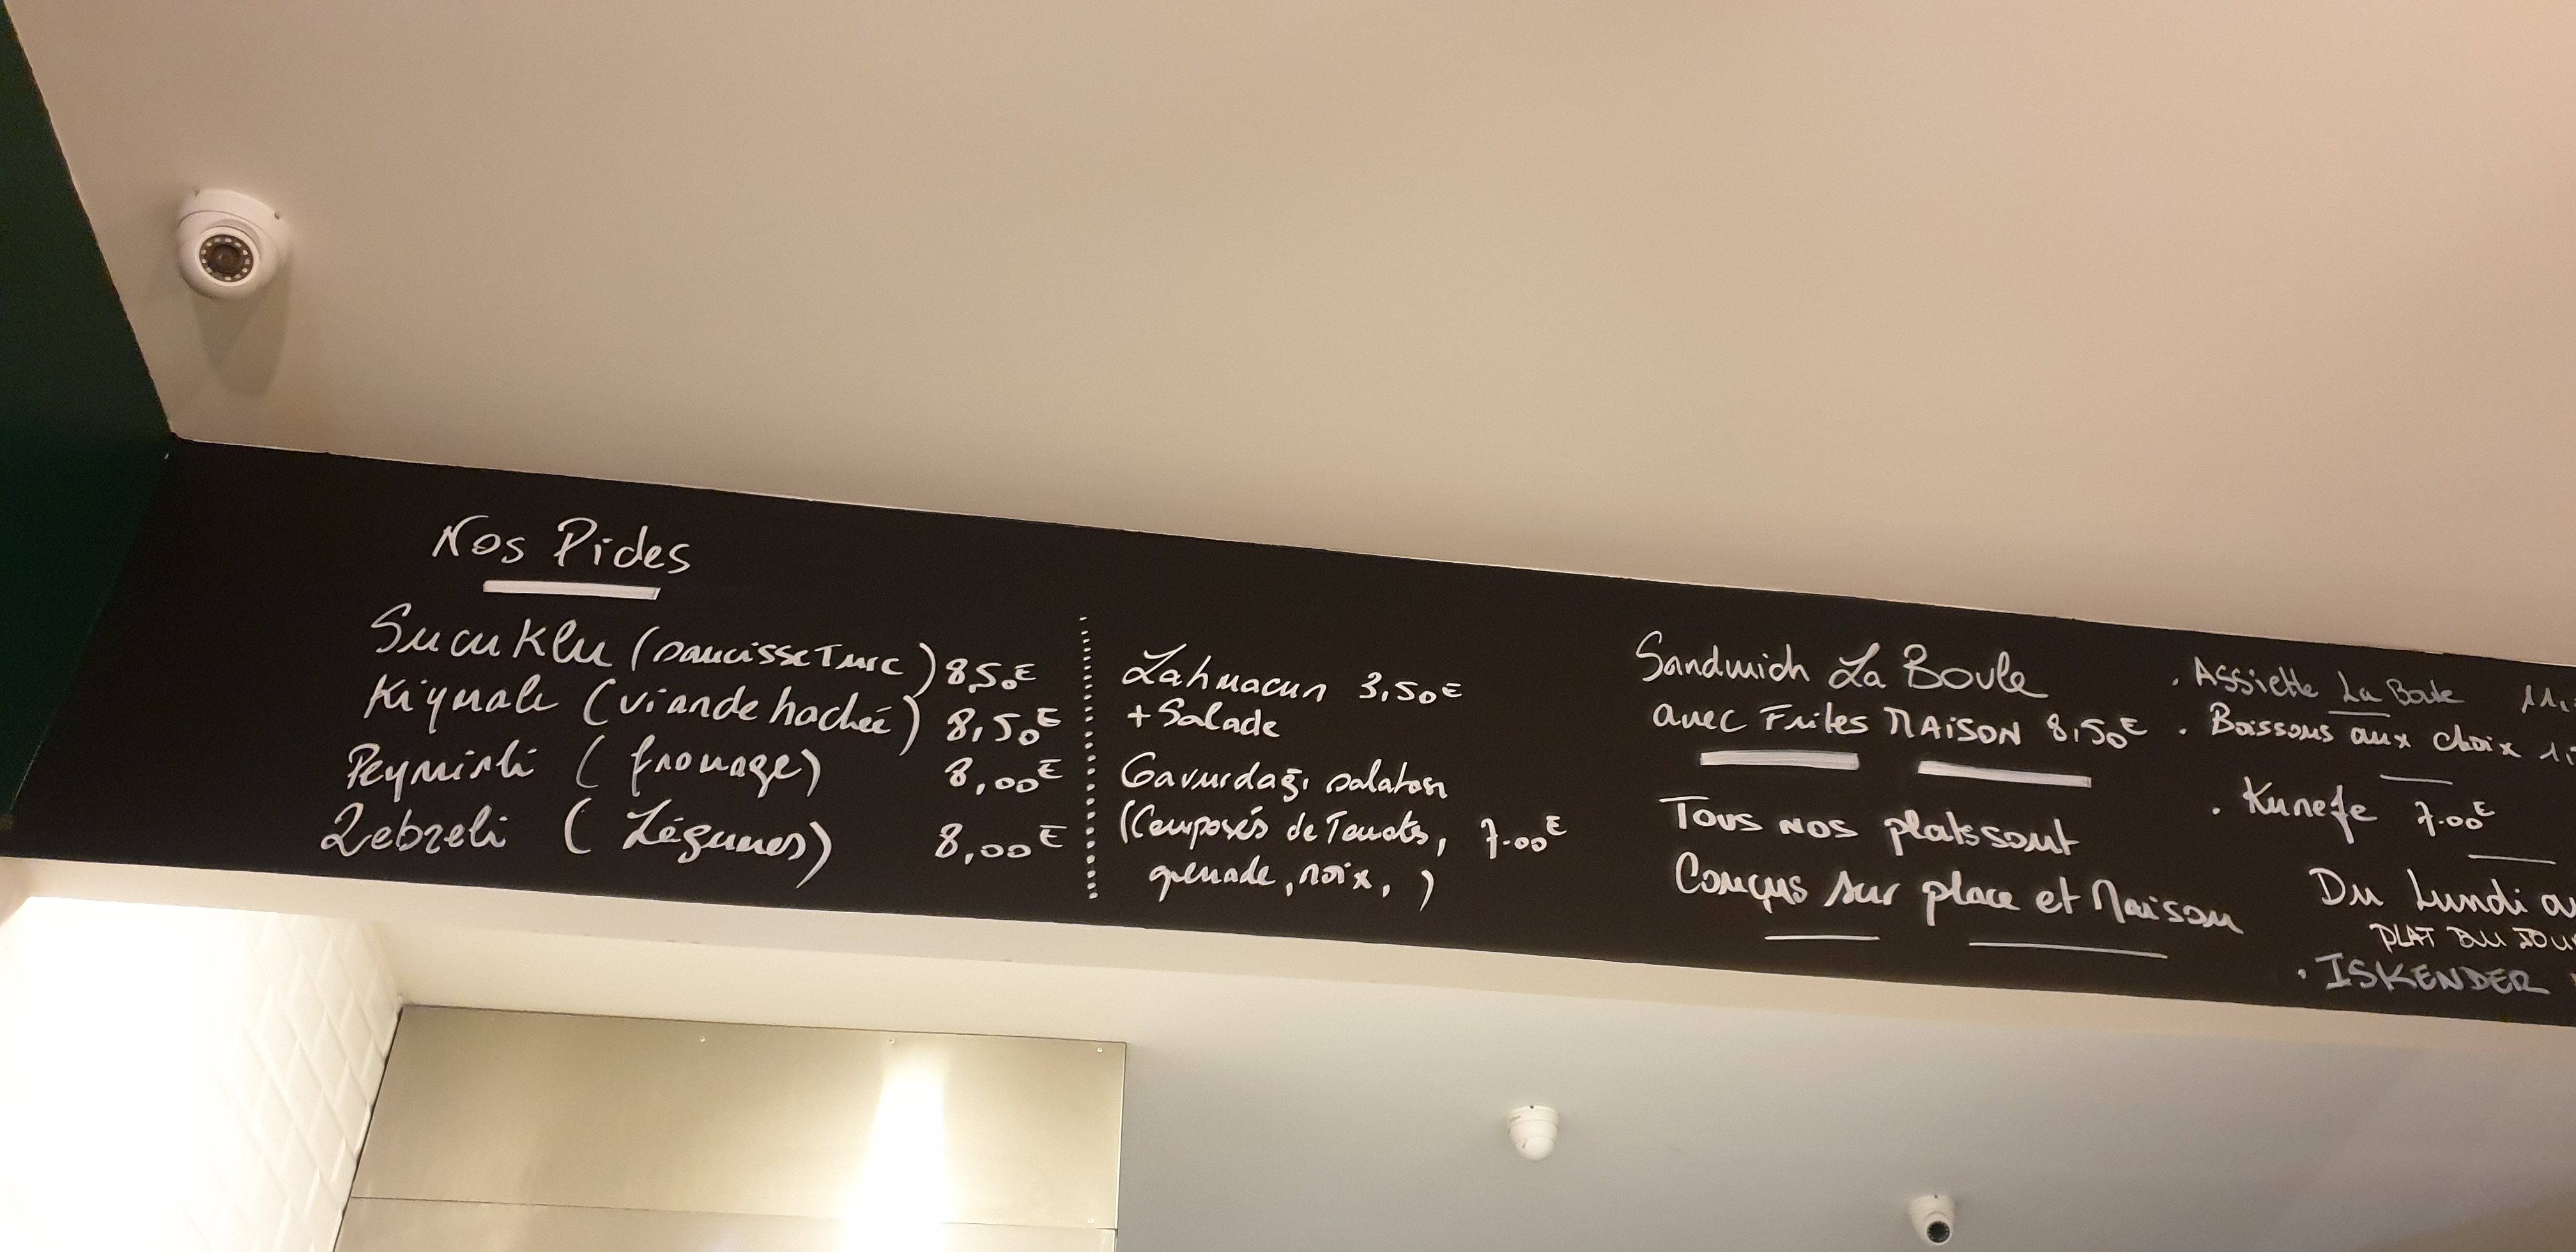 Nos Pides
Sucuklu (saucisse Turc) 8,50€
Kiymale (viande hachée) 8,50€
Peynirli (fromage) 8,00€
Zebzeli (Légumes) 8,00€
Lahmacun 3,50€
+ Salade
Gavurdağı salatası
(Composés de Tomats, 7.00€
grenade, noix, )
Sandwich La Boule
avec Frites MAISON 8,50€
Tous nos plats sont
Conçus sur place et Maison
. Assiette La Boule 11,
. Boissons aux choix 1,
. Kunefe 7.00€
Du Lundi au
PLAT DU JOUR
. ISKENDER